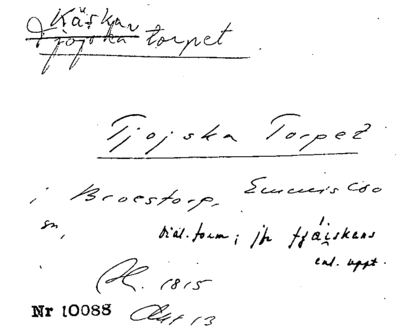 Käskan
Tjojska torpet
Tjojska Torpet
i Broestorp, Emmislöv
sn, dial. form; jfr tjäiskans
enl. uppt.
1815
Nr 10088 Akt 13